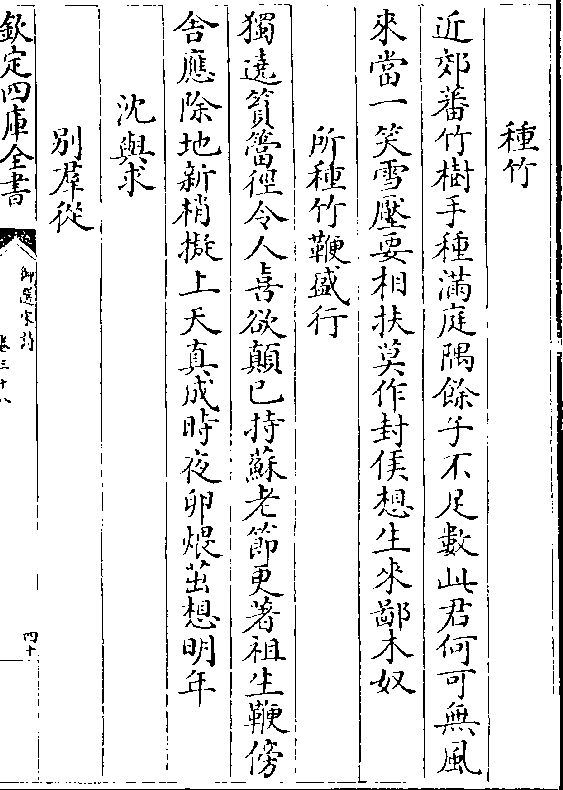 種竹
近郊蕃竹樹手種滿庭隅餘子不足數此君何可無風
來當一笑雪壓要相扶莫作封侯想生來鄙木奴
所種竹鞭盛行
獨遶篔簹徑令人喜欲顛已持蘇老節更著祖生鞭傍
舍應除地新梢擬上天真成時夜卵煨茁想明年
沈與求
別羣從
欽定四庫全書
御選宋詩
卷三十八
四十